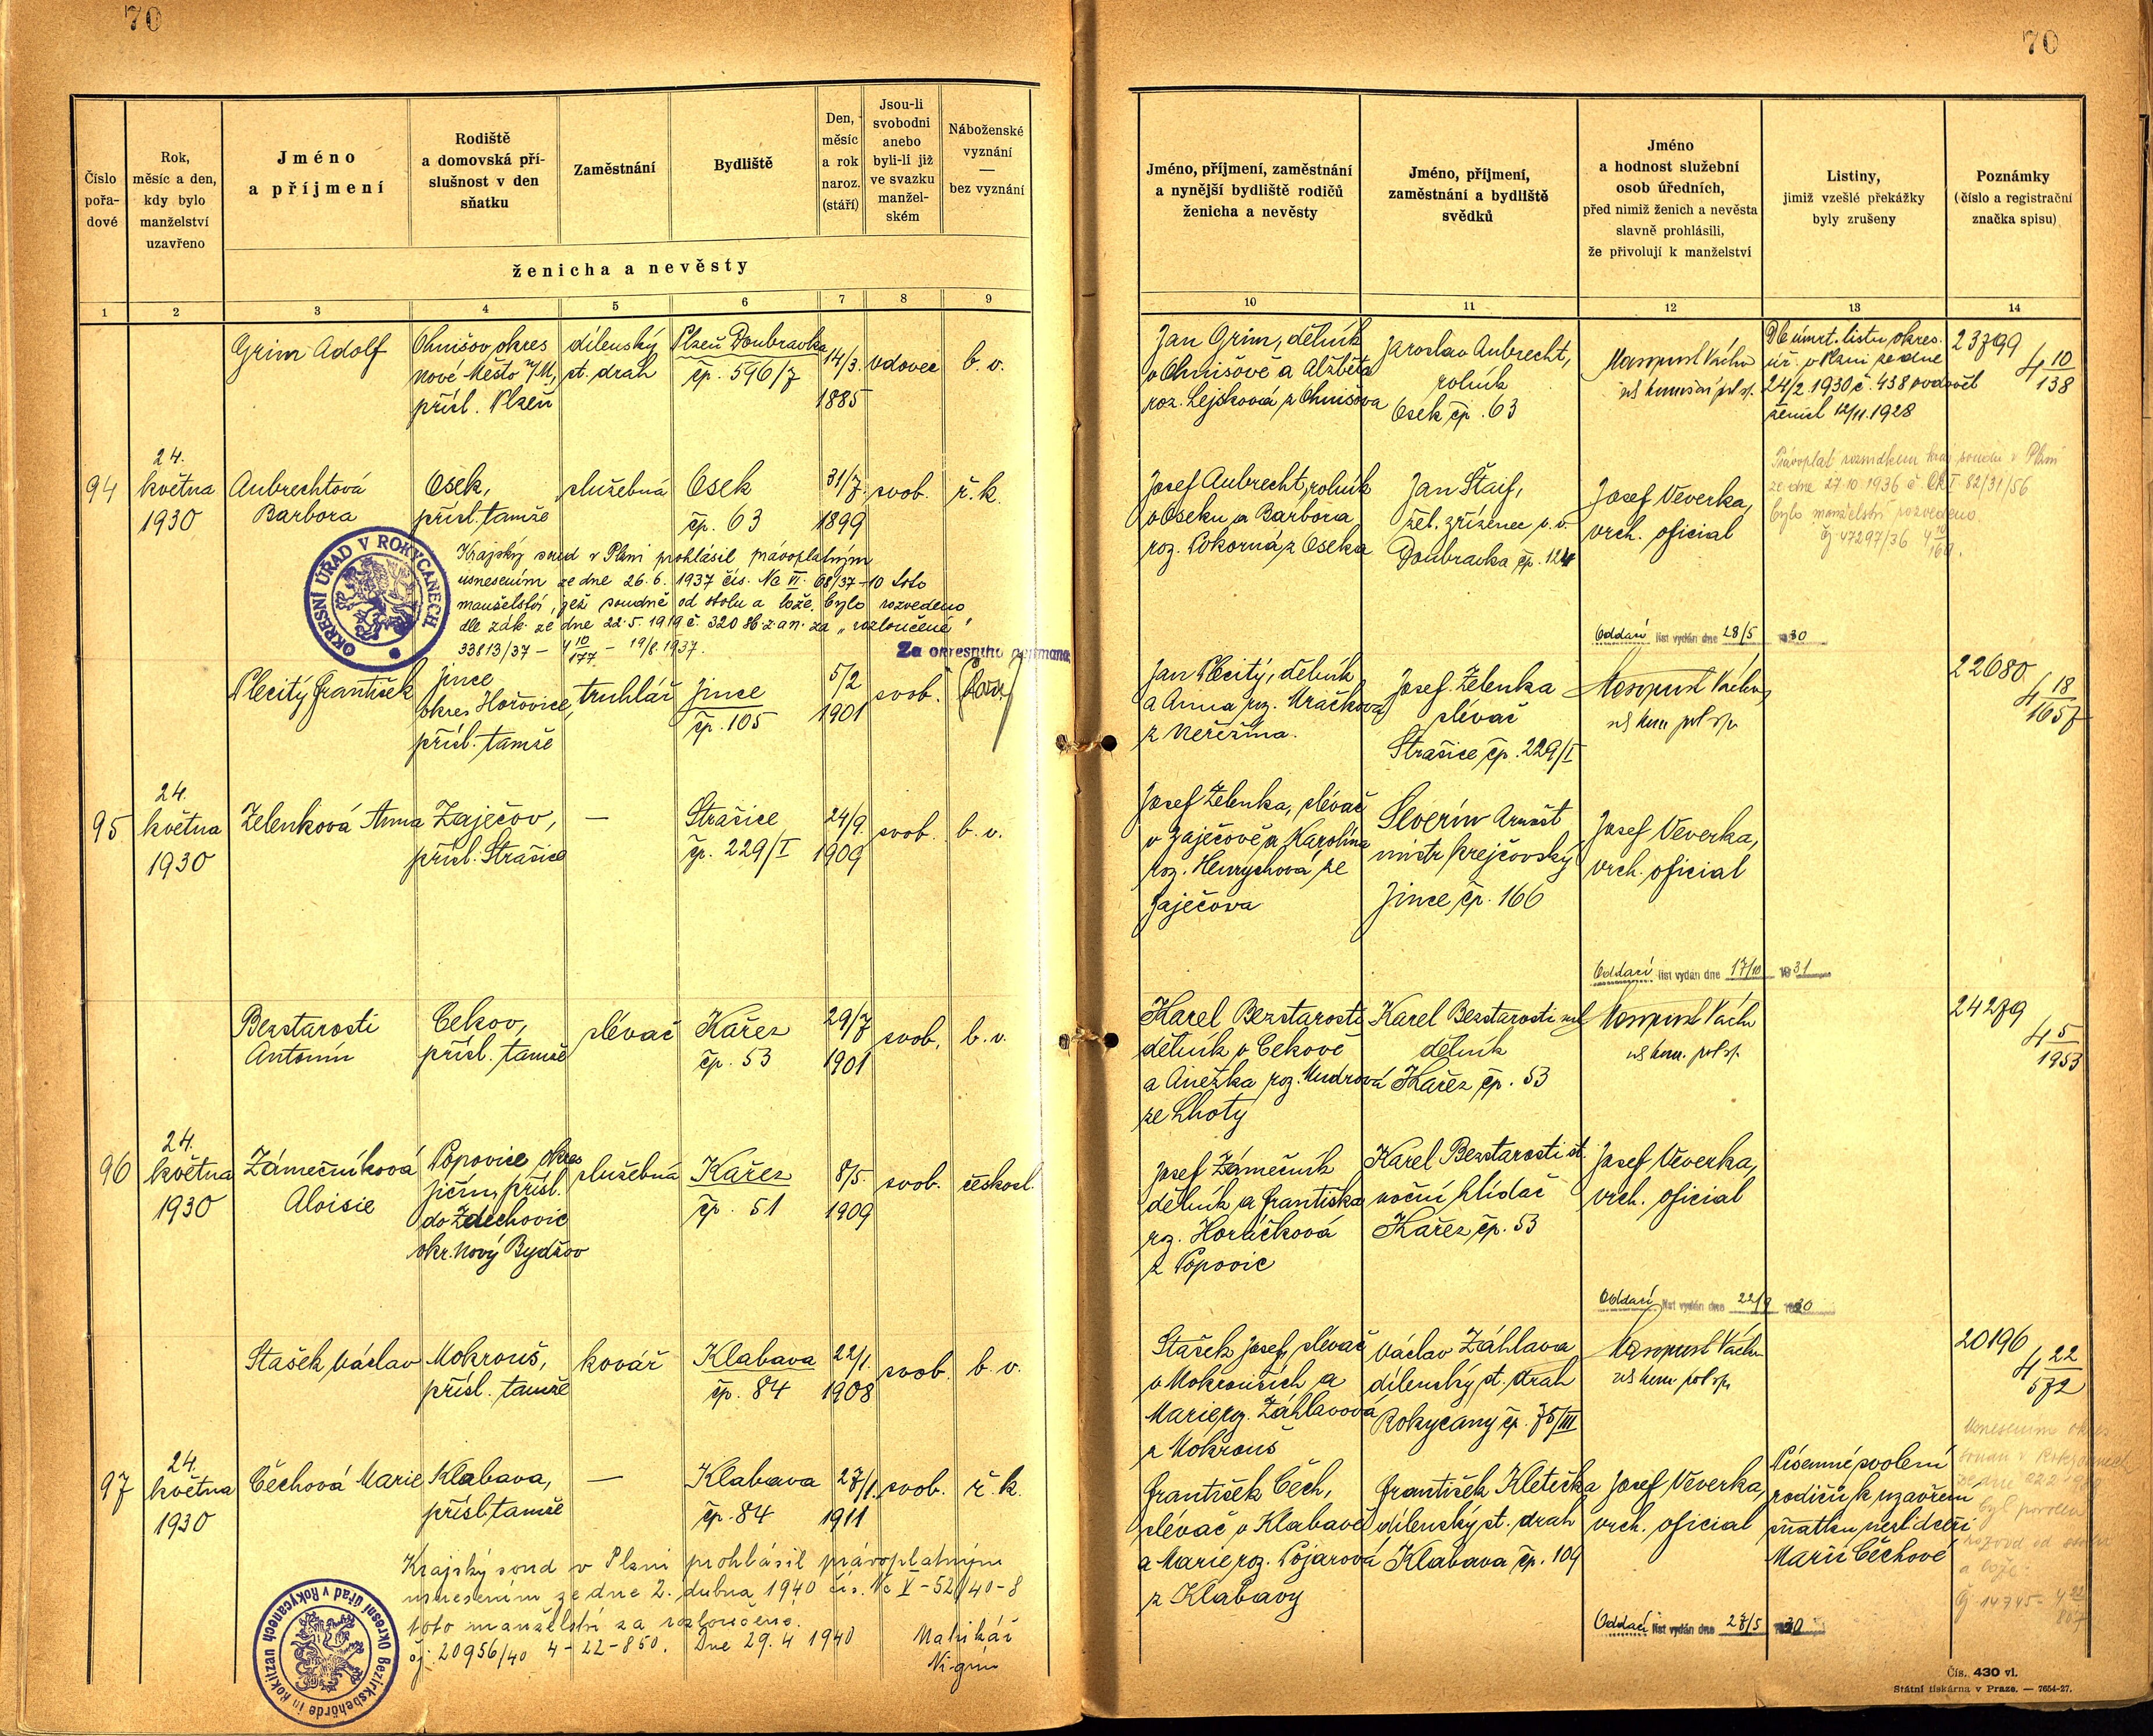 70
70
Číslo
pořa-
dové
Rok,
měsíc a den,
kdy bylo
manželství
uzavřeno
Jméno
a příjmení
Rodiště
a domovská pří-
slušnost v den
sňatku
Zaměstnání
Bydliště
Den,
měsíc
a rok
naroz.
(stáří)
Jsou-li
svobodni
anebo
byli-li již
ve svazku
manžel-
ském
Náboženské
vyznání
—
bez vyznání
ženicha a nevěsty
Jméno, příjmení, zaměstnání
a nynější bydliště rodičů
ženicha a nevěsty
Jméno, příjmení,
zaměstnání a bydliště
svědků
Jméno
a hodnost služební
osob úředních,
před nimiž ženich a nevěsta
slavně prohlásili,
že přivolují k manželství
Listiny,
jimiž vzešlé překážky
byly zrušeny
Poznámky
(číslo a registrační
značka spisu)
1 2 3 4 5 6 7 8 9 10 11 12 13 14
Grim Adolf
Ohnišov, okres
Nové Město n/M,
přísl. Plzeň
dílenský
st. drah
Plzeň Doubravka
čp. 596/7
14/3.
1885
vdovec
b. v.
Jan Grim, dělník
v Ohnišově a Alžběta
roz. Lejsková z Ohnišova
Jaroslav Aubrecht,
rolník
Osek čp. 63
Dle úmrt. listu okres.
úř. v Plzni ze dne
24/2. 1930 č. 438 ovdověl
ženich 12/11. 1928
23799
4 10/138
94
24.
května
1930
Aubrechtová
Barbora
Osek,
přísl. tamže
služebná
Osek
čp. 63
31/7.
1899
svob.
ř. k.
Josef Aubrecht, rolník
v Oseku a Barbora
roz. Pokorná z Oseka
Jan Štaif,
žel. zřízenec v. v.
Doubravka čp. 124
Josef Veverka,
vrch. oficial
Právoplat. rozsudkem kraj. soudu v Plzni
ze dne 27.10.1936 č. Ck I 82/31/56
bylo manželství rozvedeno.
čj 47297/36 4 10/169.
OKRESNÍ ÚŘAD V ROKYCANECH
Krajský soud v Plzni prohlásil právoplatným
usnesením ze dne 26. 6. 1937 čís. Nc VI. 68/37-10 toto
manželství, jež soudně od stolu a lože, bylo rozvedeno
dle zák. ze dne 22.5.1919 č. 320 Sb.z.a n. za „rozloučené"
33813/37 - 4 10/177 - 19/8. 1937.
Za okresního hejtmana
Oddací list vydán dne 28/5 1930
Plecitý František
Jince
okres Hořovice,
přísl. tamže
truhlář
Jince
čp. 105
5/2
1901
svob.
Jan Plecitý, dělník
a Anna roz. Mračková
z Neřežína.
Josef Zelenka
slévač
Strašice čp. 229/I
22680
4 18/1657
95
24.
května
1930
Zelenková Anna
Zaječov,
přísl. Strašice
—
Strašice
čp. 229/I
24/9.
1909
svob.
b. v.
Josef Zelenka, slévač
v Zaječově a Karolina
roz. Henrychová ze
Zaječova
Severin Arnošt
mistr krejčovský
Jince čp. 166
Josef Veverka,
vrch. oficial
Oddací list vydán dne 17/10 1931
Bezstarosti
Antonín
Cekov,
přísl. tamže
slévač
Kařez
čp. 53
29/7
1901
svob.
b. v.
Karel Bezstarosti
dělník v Cekově
a Anežka roz. Mudrová
ze Lhoty
Karel Bezstarosti ml
dělník
Kařez čp. 53
24279
4 5/1953
96
24.
května
1930
Zámečníková
Aloisie
Popovice okres
Jičín, přísl.
do Zdechovic
okr. Nový Bydžov
služebná
Kařez
čp. 51
8/5.
1909
svob.
českosl.
Josef Zámečník
dělník a Františka
roz. Horáčková
z Popovic
Karel Bezstarosti st.
noční hlídač
Kařez čp. 53
Josef Veverka,
vrch. oficial
Oddací list vydán dne 22/9 1930
Stašek Václav
Mokrouš,
přísl. tamže
kovář
Klabava
čp. 84
22/1.
1908
svob.
b. v.
Stašek Josef, slévač
v Mokrouších a
Marie roz. Záhlavová
z Mokrouš
Václav Záhlava
dílenský st. drah
Rokycany čp. 75/III
20196
4 22/572
97
24.
května
1930
Čechová Marie
Klabava,
přísl. tamže
—
Klabava
čp. 84
27/1.
1911
svob.
ř. k.
František Čech,
slévač v Klabavě
a Marie roz. Pojarová
z Klabavy
František Kletečka
dílenský st. drah
Klabava čp. 109
Josef Veverka,
vrch. oficial
Písemné svolení
rodičů k uzavření
sňatku nezl. dceři
Marii Čechové
Usnesením okres.
soudu v Rokycanech
byl povolen
rozvod od stolu
a lože.
Krajský soud v Plzni prohlásil právoplatným
usnesením ze dne 2. dubna 1940 čís. Nc V-52/40-8
toto manželství za rozloučené.
čj. 20956/40 4-22-850. Dne 29. 4 1940
Matrikář
Nigrin
Bezirksbehörde in Rokitzan
Okresní úřad v Rokycanech
Oddací list vydán dne 28/5 1930
Čís. 430 vl.
Státní tiskárna v Praze. — 7654-27.